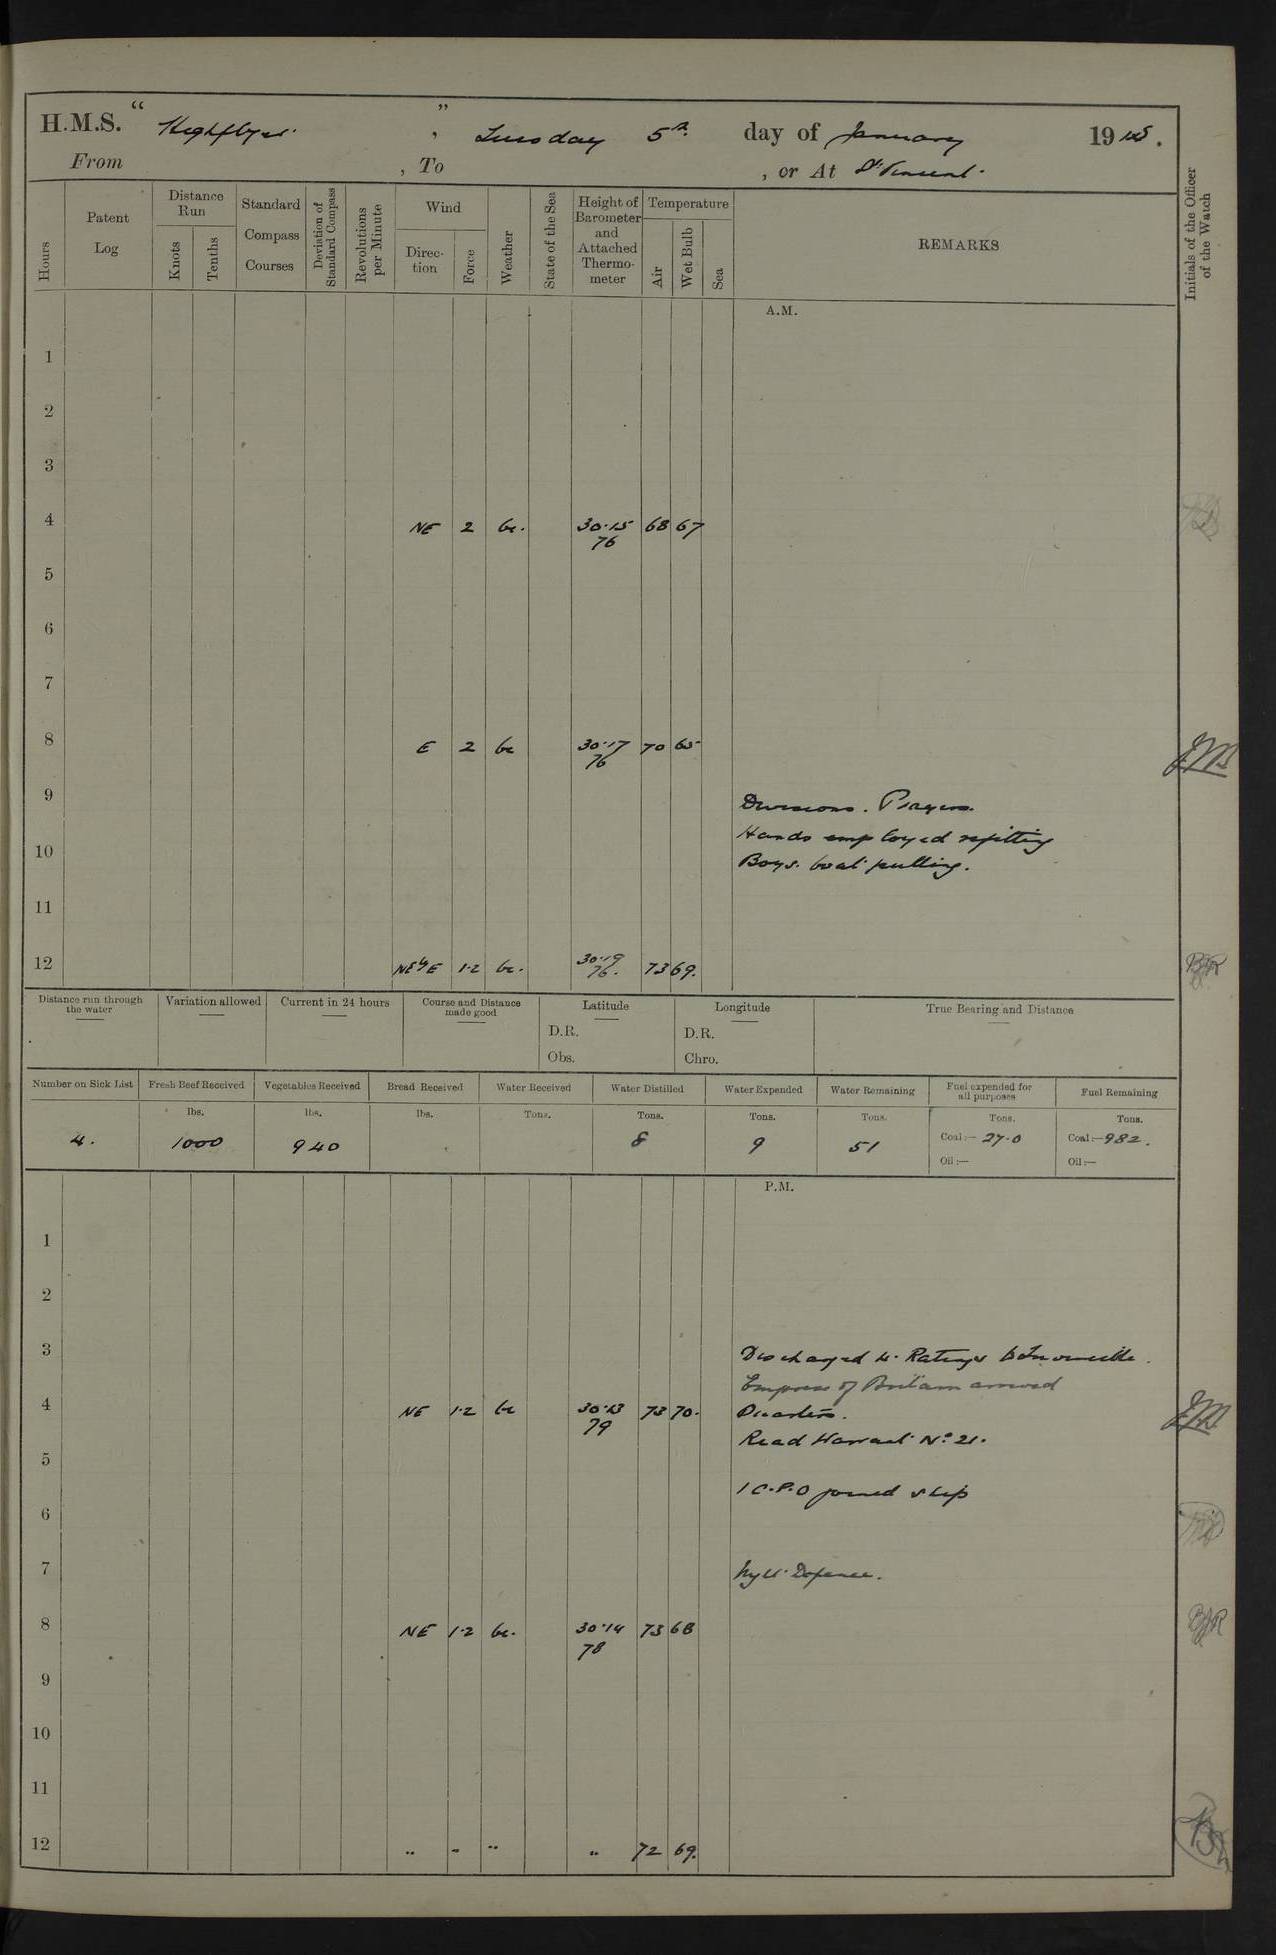 H.M.S. " Highflyer ", Tuesday 5th day of January 1915.
From , To , or At St Vincent.
Hours
Patent Log
Distance Run
Knots
Tenths
Standard Compass Courses
Deviation of Standard Compass
Revolutions per Minute
Wind
Direction
Force
Weather
State of the Sea
Height of Barometer and Attached Thermometer
Temperature
Air
Wet Bulb
Sea
REMARKS
Initials of the Officer of the Watch
A.M.
1
2
3
4 NE 2 bc. 30.15 68 67
76
5
6
7
8 E 2 bc 30.17 70 65
76
9 Divisions. Prayers.
Hands employed refitting
10 Boys boat pulling.
11
12 NEbyE 1.2 bc. 30.19 73 69.
76.
Distance run through the water
Variation allowed
Current in 24 hours
Course and Distance made good
Latitude
D.R.
Obs.
Longitude
D.R.
Chro.
True Bearing and Distance
Number on Sick List
Fresh Beef Received
Vegetables Received
Bread Received
Water Received
Water Distilled
Water Expended
Water Remaining
Fuel expended for all purposes
Fuel Remaining
lbs. lbs. lbs. Tons. Tons. Tons. Tons. Tons. Tons.
4. 1000 940 8 9 51 Coal:— 27.0 Coal:— 982.
Oil:— Oil:—
P.M.
1
2
3 Discharged 4 Ratings to
Empress of Britain arrived
4 NE 1.2 bc 30.13 73 70. Quarters.
79
Read Warrant No 21.
5
1 C.P.O joined ship
6
7 Night Defence.
8 NE 1.2 bc. 30.14 73 68
78
9
10
11
12 " " " " 72 69.